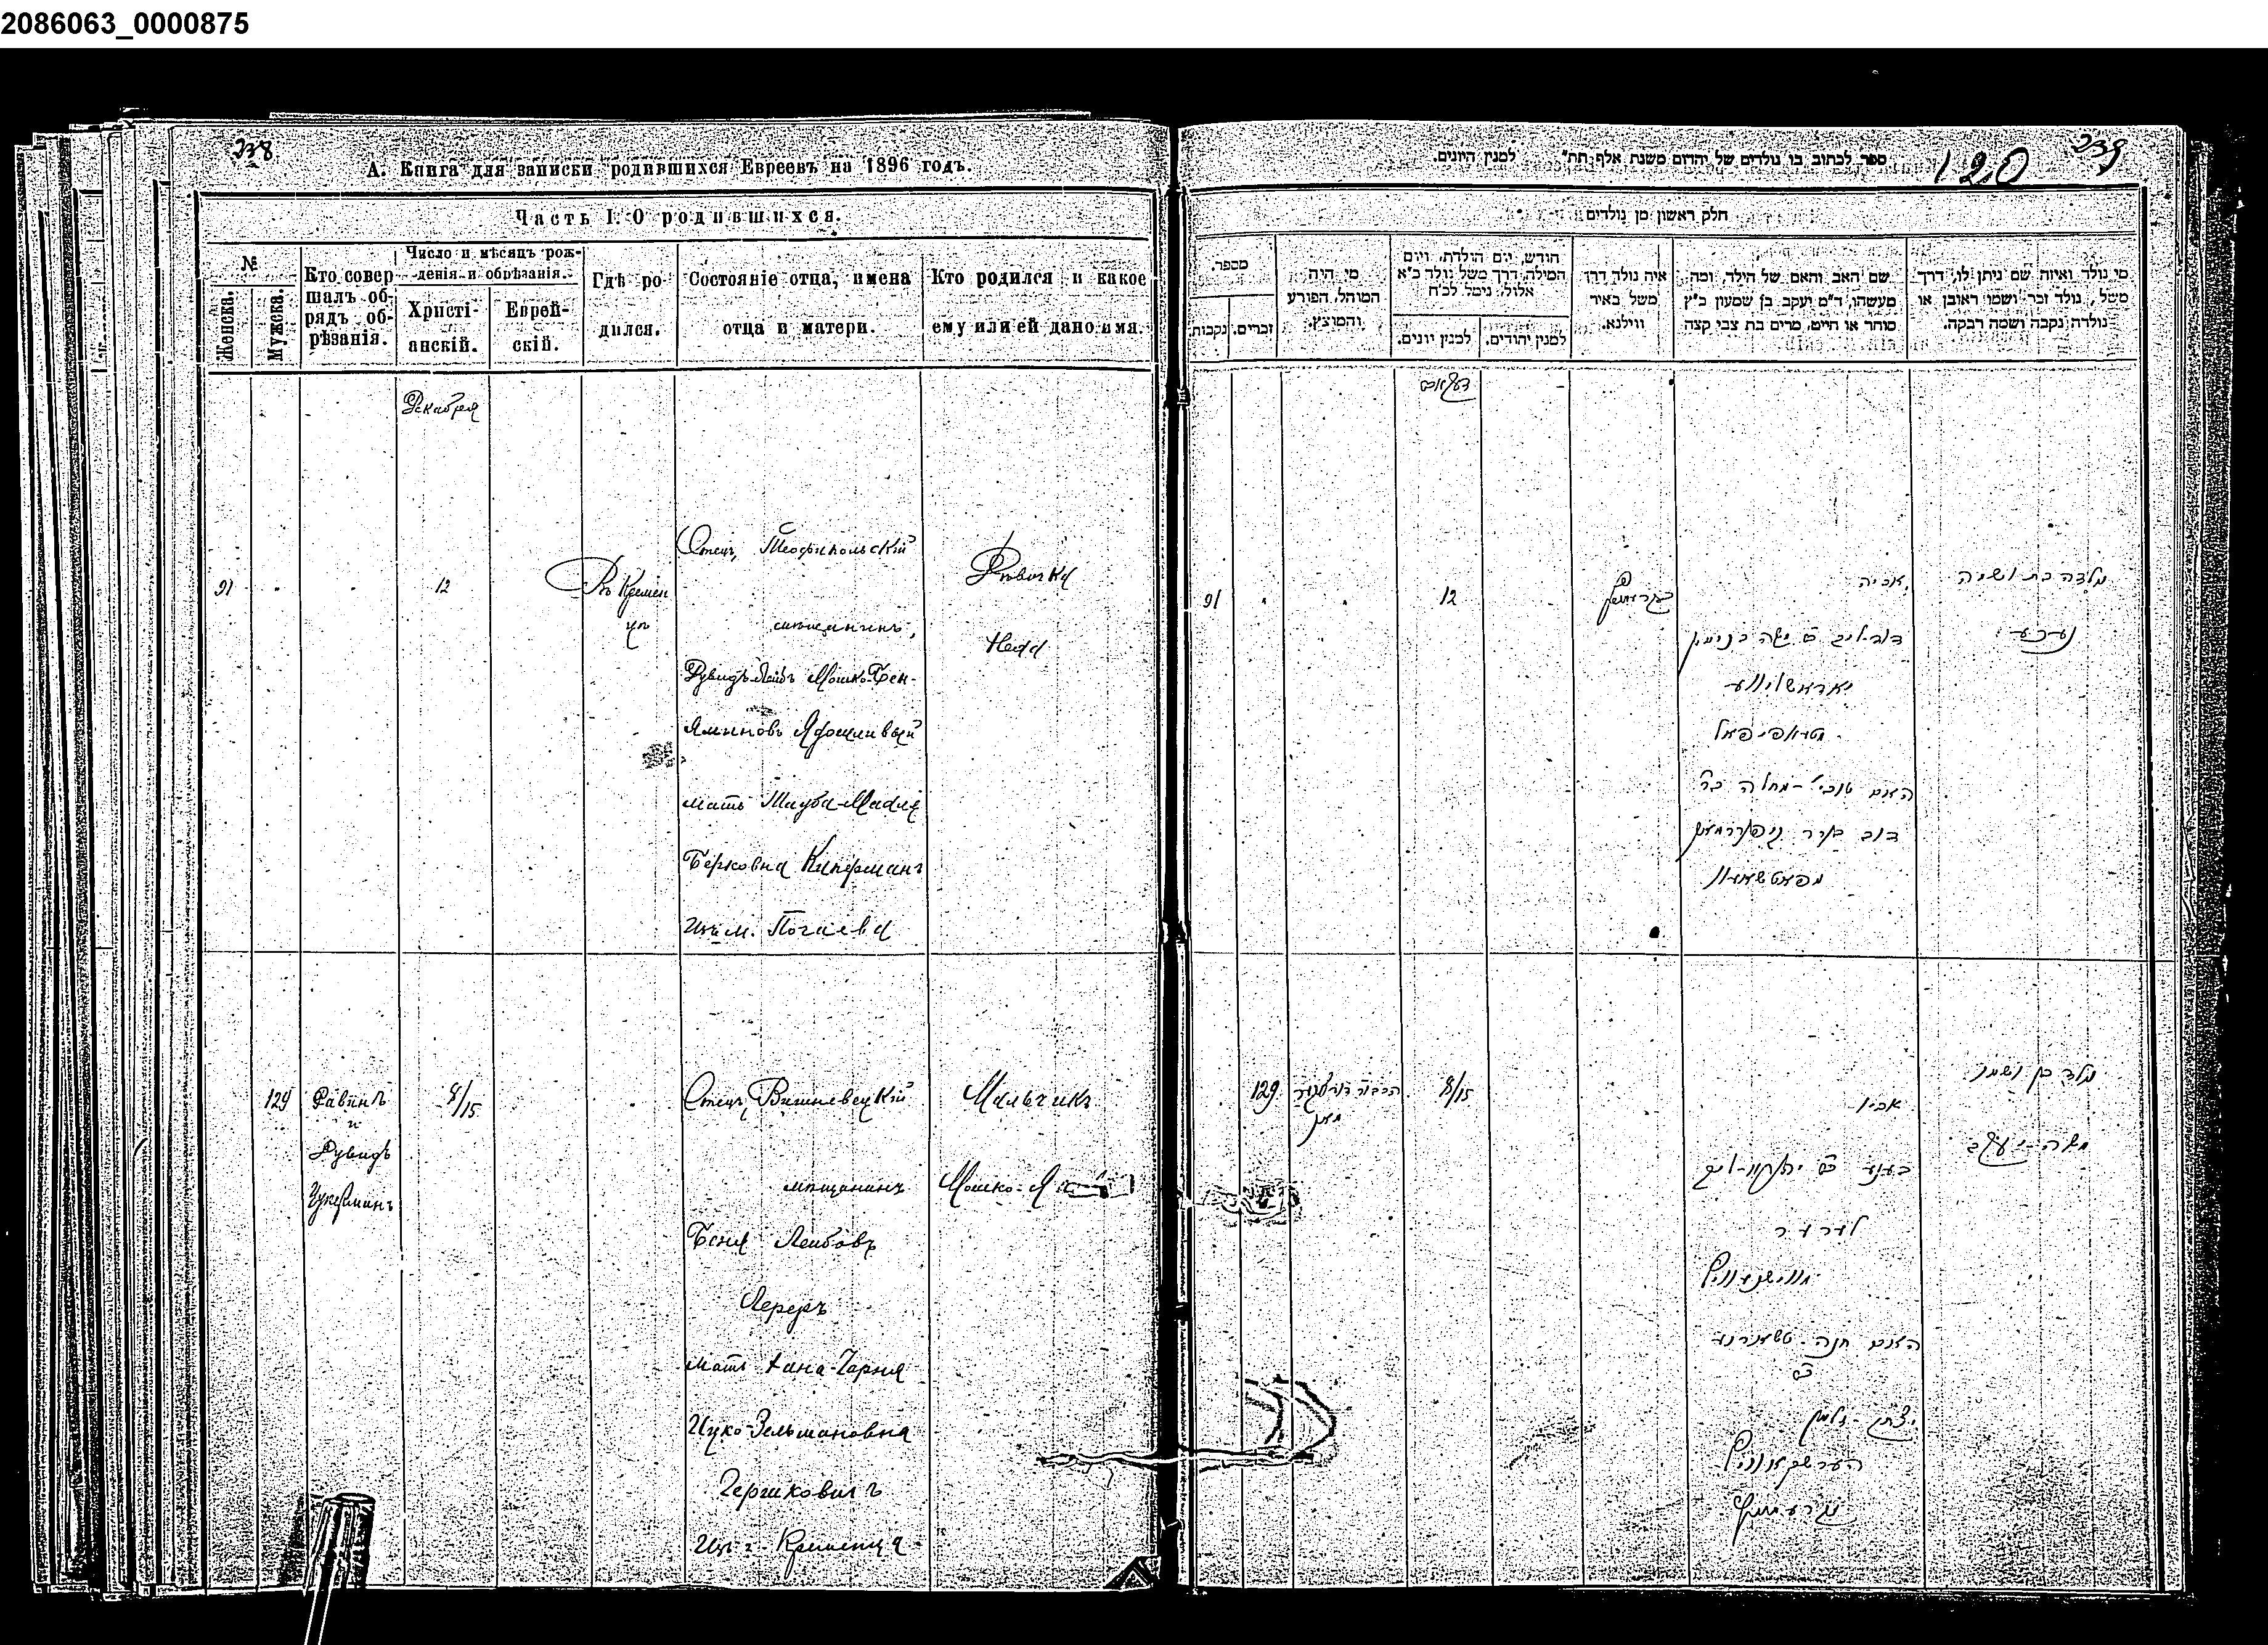 2086063_0000875
238
А. Книга для записки родившихся Евреевъ на 1896 годъ.
Часть I. О родившихся.
№
Женска.
Мужска.
Кто совер-
шалъ об-
рядъ об-
рѣзанія.
Число и мѣсяцъ рож-
денія и обрѣзанія.
Христі-
анскій.
Еврей-
скій.
Гдѣ ро-
дился.
Состояніе отца, имена
отца и матери.
Кто родился и какое
ему или ей дано имя.
Декабря
91
12
Въ Кремен
цѣ
Отецъ Теофипольскій
мѣщанинъ,
Дувидъ-Лейбъ Мошко-Бен-
яминовъ Ярошливый
мать Тауба-Махля
Берковна Киперманъ
изъ м. Почаева
Дѣвочка
Неха
129
Равинъ
и
Дувидъ
Цукерманъ
8/15
Отецъ Вишневецкій
мѣщанинъ
Беня Лейбовъ
Лереръ
мать Хана-Чарня
Ицко-Зельмановна
Гершковичъ
изъ г. Кременца
Мальчикъ
Мошко-Я
ספר לכתוב בו נולדים של יהדום משנת אלף תת״ למנין היונים.
120
239
חלק ראשון מן נולדים
מספר.
נקבות
זכרים.
מי היה
המוהל, הפורע
והמוצץ.
חודש, יום הולדת, ויום
המילה, דרך משל נולד כ״א
אלול, נימל לכ״ח
למנין יונים.
למנין יהודים.
איה נולד דרך
משל באיר
ווילנא.
שם האב והאם של הילד, ומה
מעשהו, ד״מ יעקב בן שמעון כ״ץ
סוחר או חייט, מרים בת צבי קצה
מי נולד ואיזה שם ניתן לו, דרך
משל, נולד זכר ושמו ראובן או
נולדה נקבה ושמה רבקה.
91
12
אביה
נולדה בת ושמה
דוד-ליב
יאראשליווע
טעאפיפאל
האם
דוב בער
מפאטשאיוו
129
8/15
נולד בן ושמו
אביו
משה-יעקב
לערער
ווישניוויץ
האם חנה טשארנע
הערשקאוויץ